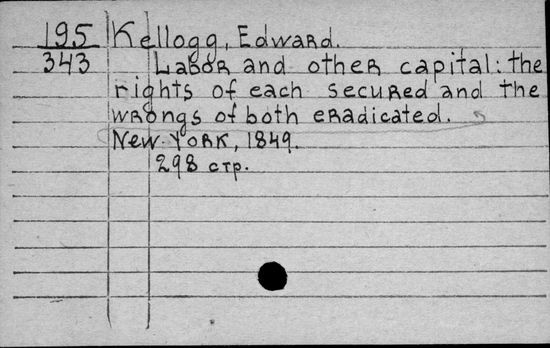 195 Kellogg, Edward.
343 Labor and other capital: the
rights of each secured and the
wrongs of both eradicated.
New-York, 1849.
298 стр.